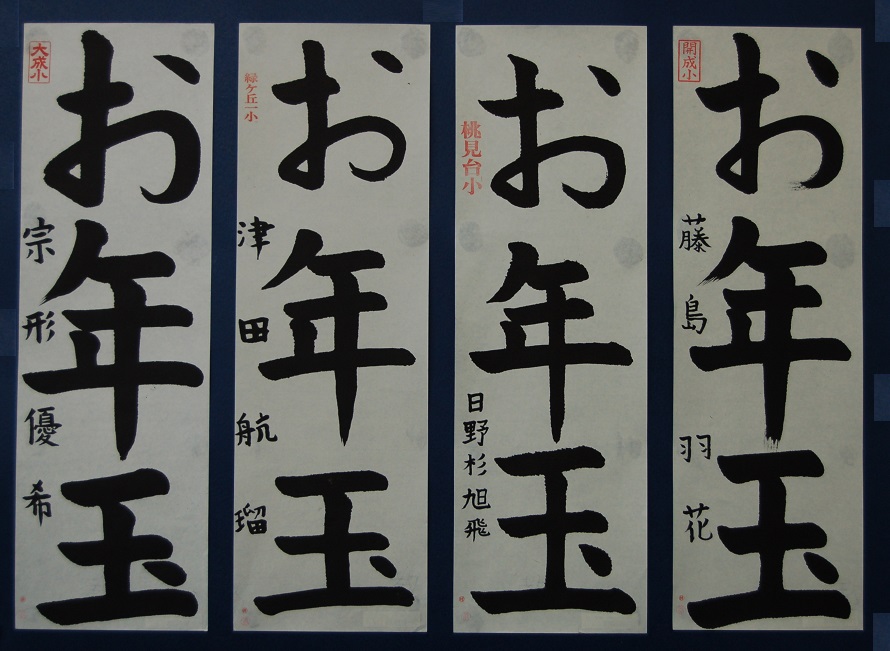 開成小
お年玉
藤島羽花
桃見台小
お年玉
日野杉旭飛
緑ケ丘一小
お年玉
津田航瑠
大成小
お年玉
宗形優希